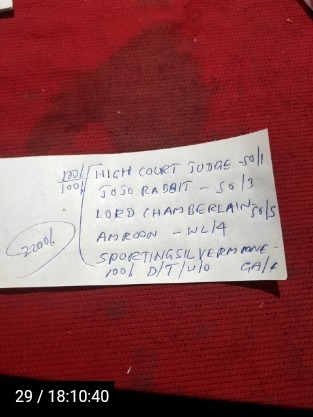 100/- HIGH COURT JUDGE -50/1
100/- JOJO RABBIT - 50/3
LORD CHAMBERLAIN 50/5
AMROON - WL/4
SPORTINGSILVERMINE -
100/- D/T/U/O GA/
2200/-
29 / 18:10:40